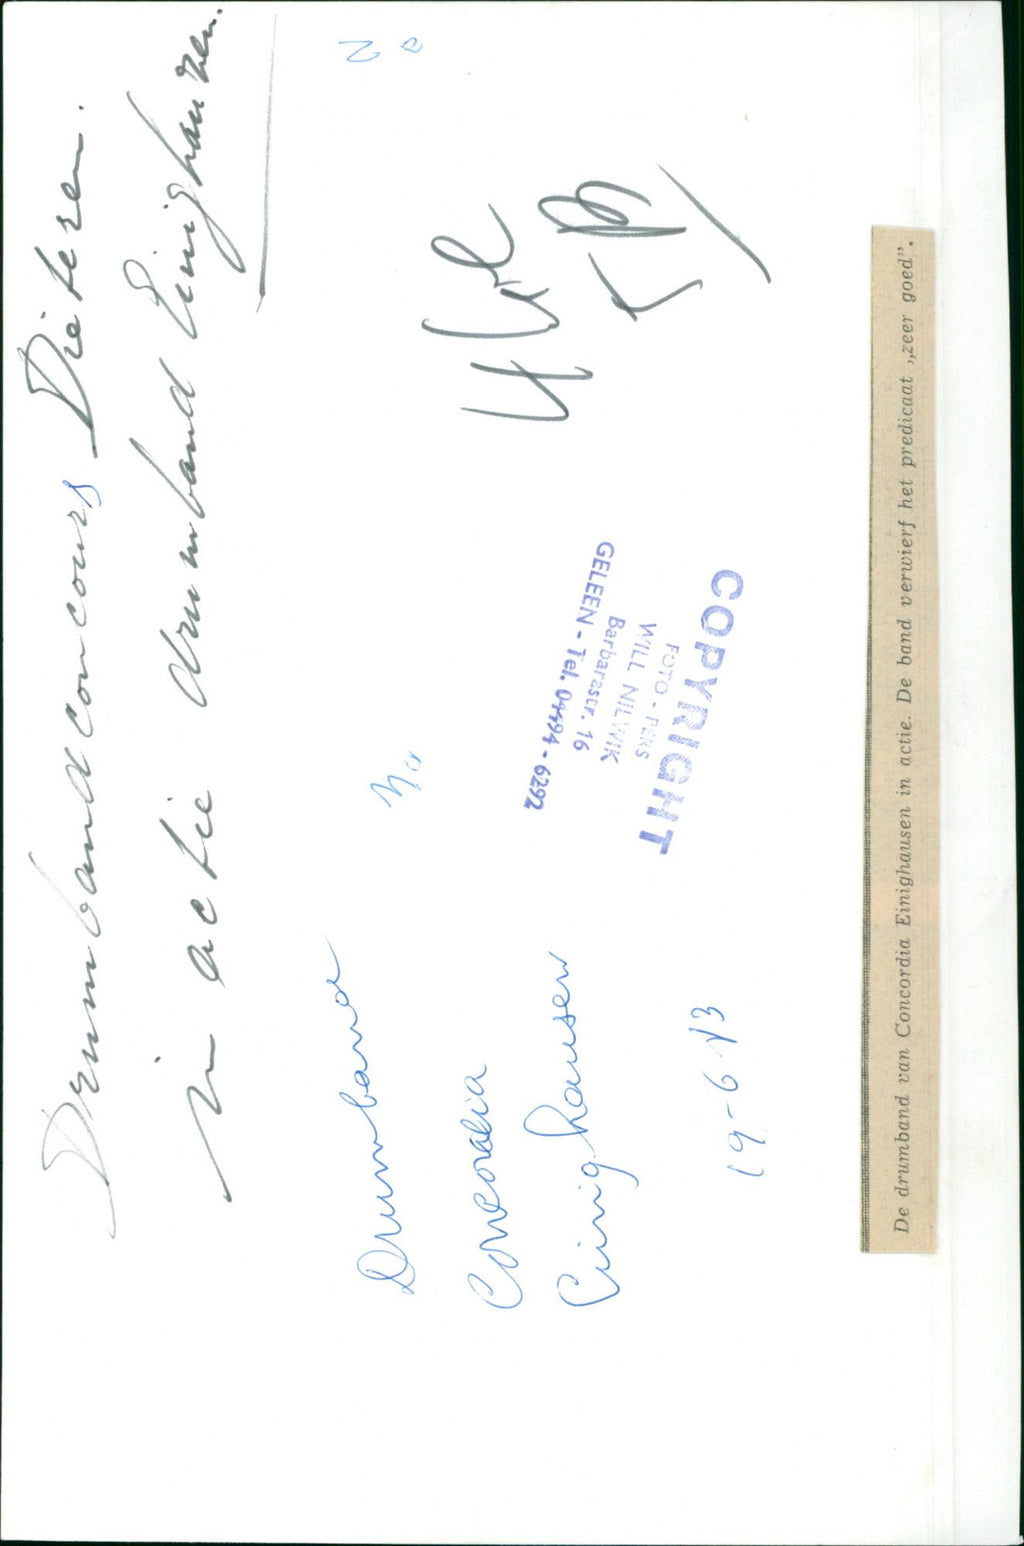 Drumbandconcours Dieteren.
in actie drumband Einighauzen.
Drumband
Concordia
Einighausen
19-6-73
COPYRIGHT
FOTO - PERS
WILL NILWIK
Barbarastr. 16
GELEEN - Tel. 04494 - 6292
De drumband van Concordia Einighausen in actie. De band verwierf het predicaat „zeer goed”.